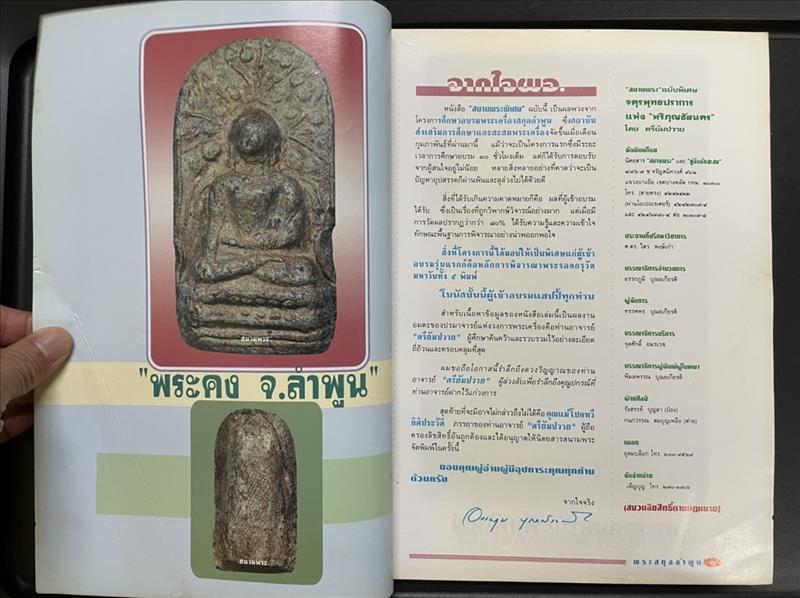 สนามพระ
"พระคง จ.ลำพูน"
สนามพระ
จากใจผจ.
หนังสือ "สนามพระพิเศษ" ฉบับนี้ เป็นผลพวงจาก
โครงการศึกษาอบรมพระเครื่องสกุลลำพูน ซึ่งสถาบัน
ส่งเสริมการศึกษาและสะสมพระเครื่องจัดขึ้นเมื่อเดือน
กุมภาพันธ์ที่ผ่านมานี้ แม้ว่าจะเป็นโครงการแรกซึ่งมีระยะ
เวลาการศึกษาอบรม ๓๐ ชั่วโมงเต็ม แต่ก็ได้รับการตอบรับ
จากผู้สนใจอยู่ไม่น้อย หลายสิ่งหลายอย่างที่คาดว่าจะเป็น
ปัญหาอุปสรรคก็ผ่านพ้นและลุล่วงไปได้ด้วยดี
สิ่งที่ได้รับเกินความคาดหมายก็คือ ผลที่ผู้เข้าอบรม
ได้รับ ซึ่งเป็นเรื่องที่ถูกวิพากษ์วิจารณ์อย่างมาก แต่เมื่อมี
การวัดผลปรากฏว่ากว่า ๘๐% ได้รับความรู้และความเข้าใจ
ทักษะพื้นฐานการพิจารณาอย่างน่าพออกพอใจ
สิ่งที่โครงการนี้ได้มอบให้เป็นพิเศษแก่ผู้เข้า
อบรมรุ่นแรกก็คือหลักการพิจารณาพระรอดกรุวัด
มหาวันทั้ง ๕ พิมพ์
โบนัสชิ้นนี้ผู้เข้าอบรมแฮปปี้ทุกท่าน
สำหรับเนื้อหาข้อมูลของหนังสือเล่มนี้เป็นผลงาน
อมตะของปรมาจารย์แห่งวงการพระเครื่องคือท่านอาจารย์
"ตรียัมปวาย" ผู้ศึกษาค้นคว้าและรวบรวมไว้อย่างละเอียด
ถี่ถ้วนและครอบคลุมที่สุด
ผมขอถือโอกาสนี้รำลึกถึงดวงวิญญาณของท่าน
อาจารย์ "ตรียัมปวาย" ผู้ล่วงลับเพื่อรำลึกถึงคุณูปการที่
ท่านอาจารย์ฝากไว้แก่วงการ
สุดท้ายที่จะมิอาจไม่กล่าวถึงไม่ได้คือคุณแม่โชตหวี
กิติประวัติ ภรรยาของท่านอาจารย์ "ตรียัมปวาย" ผู้ถือ
ครองลิขสิทธิ์อันถูกต้องและได้อนุญาตให้นิตยสารสนามพระ
จัดพิมพ์ในครั้งนี้
ขอบคุณผู้อ่านผู้มีอุปการะคุณทุกท่าน
ด้วยครับ
จากใจจริง
"สนามพระ" ฉบับพิเศษ
จตุรพุทธปราการ
แห่ง "หริภุญชัยนคร"
โดย ตรียัมปวาย
จัดพิมพ์โดย
นิตยสาร "สนามพระ" และ
ประธานที่ปรึกษาวิชาการ
บรรณาธิการอำนวยการ
อรรถภูมิ บุณยเกียรติ
ผู้จัดการ
ทรรศพร บุณยเกียรติ
บรรณาธิการบริหาร
จุลศักดิ์ อมรเวช
บรรณาธิการผู้พิมพ์ผู้โฆษณา
พิมลพรรณ บุณยเกียรติ
ฝ่ายศิลป์
รังสรรค์ บุญตา (ป๋อง)
กนกวรรณ สมบุญเหลือ (ต่าย)
เพลท
จัดจำหน่าย
เพ็ญบุญ
(สงวนลิขสิทธิ์ตามกฎหมาย)
พระสกุลลำพูน